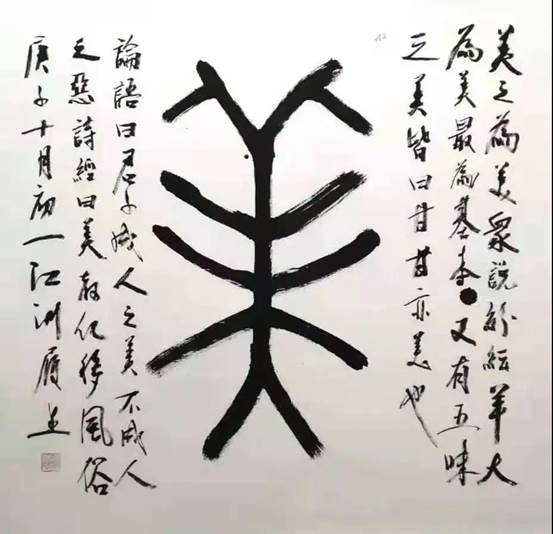 美之為美衆說紛紜羊大
為美最為基本又有五味
之美皆曰甘甘亦美也
美
論語曰君子成人之美不成人
之惡詩經曰美教化移風俗
庚子十月初一江洲